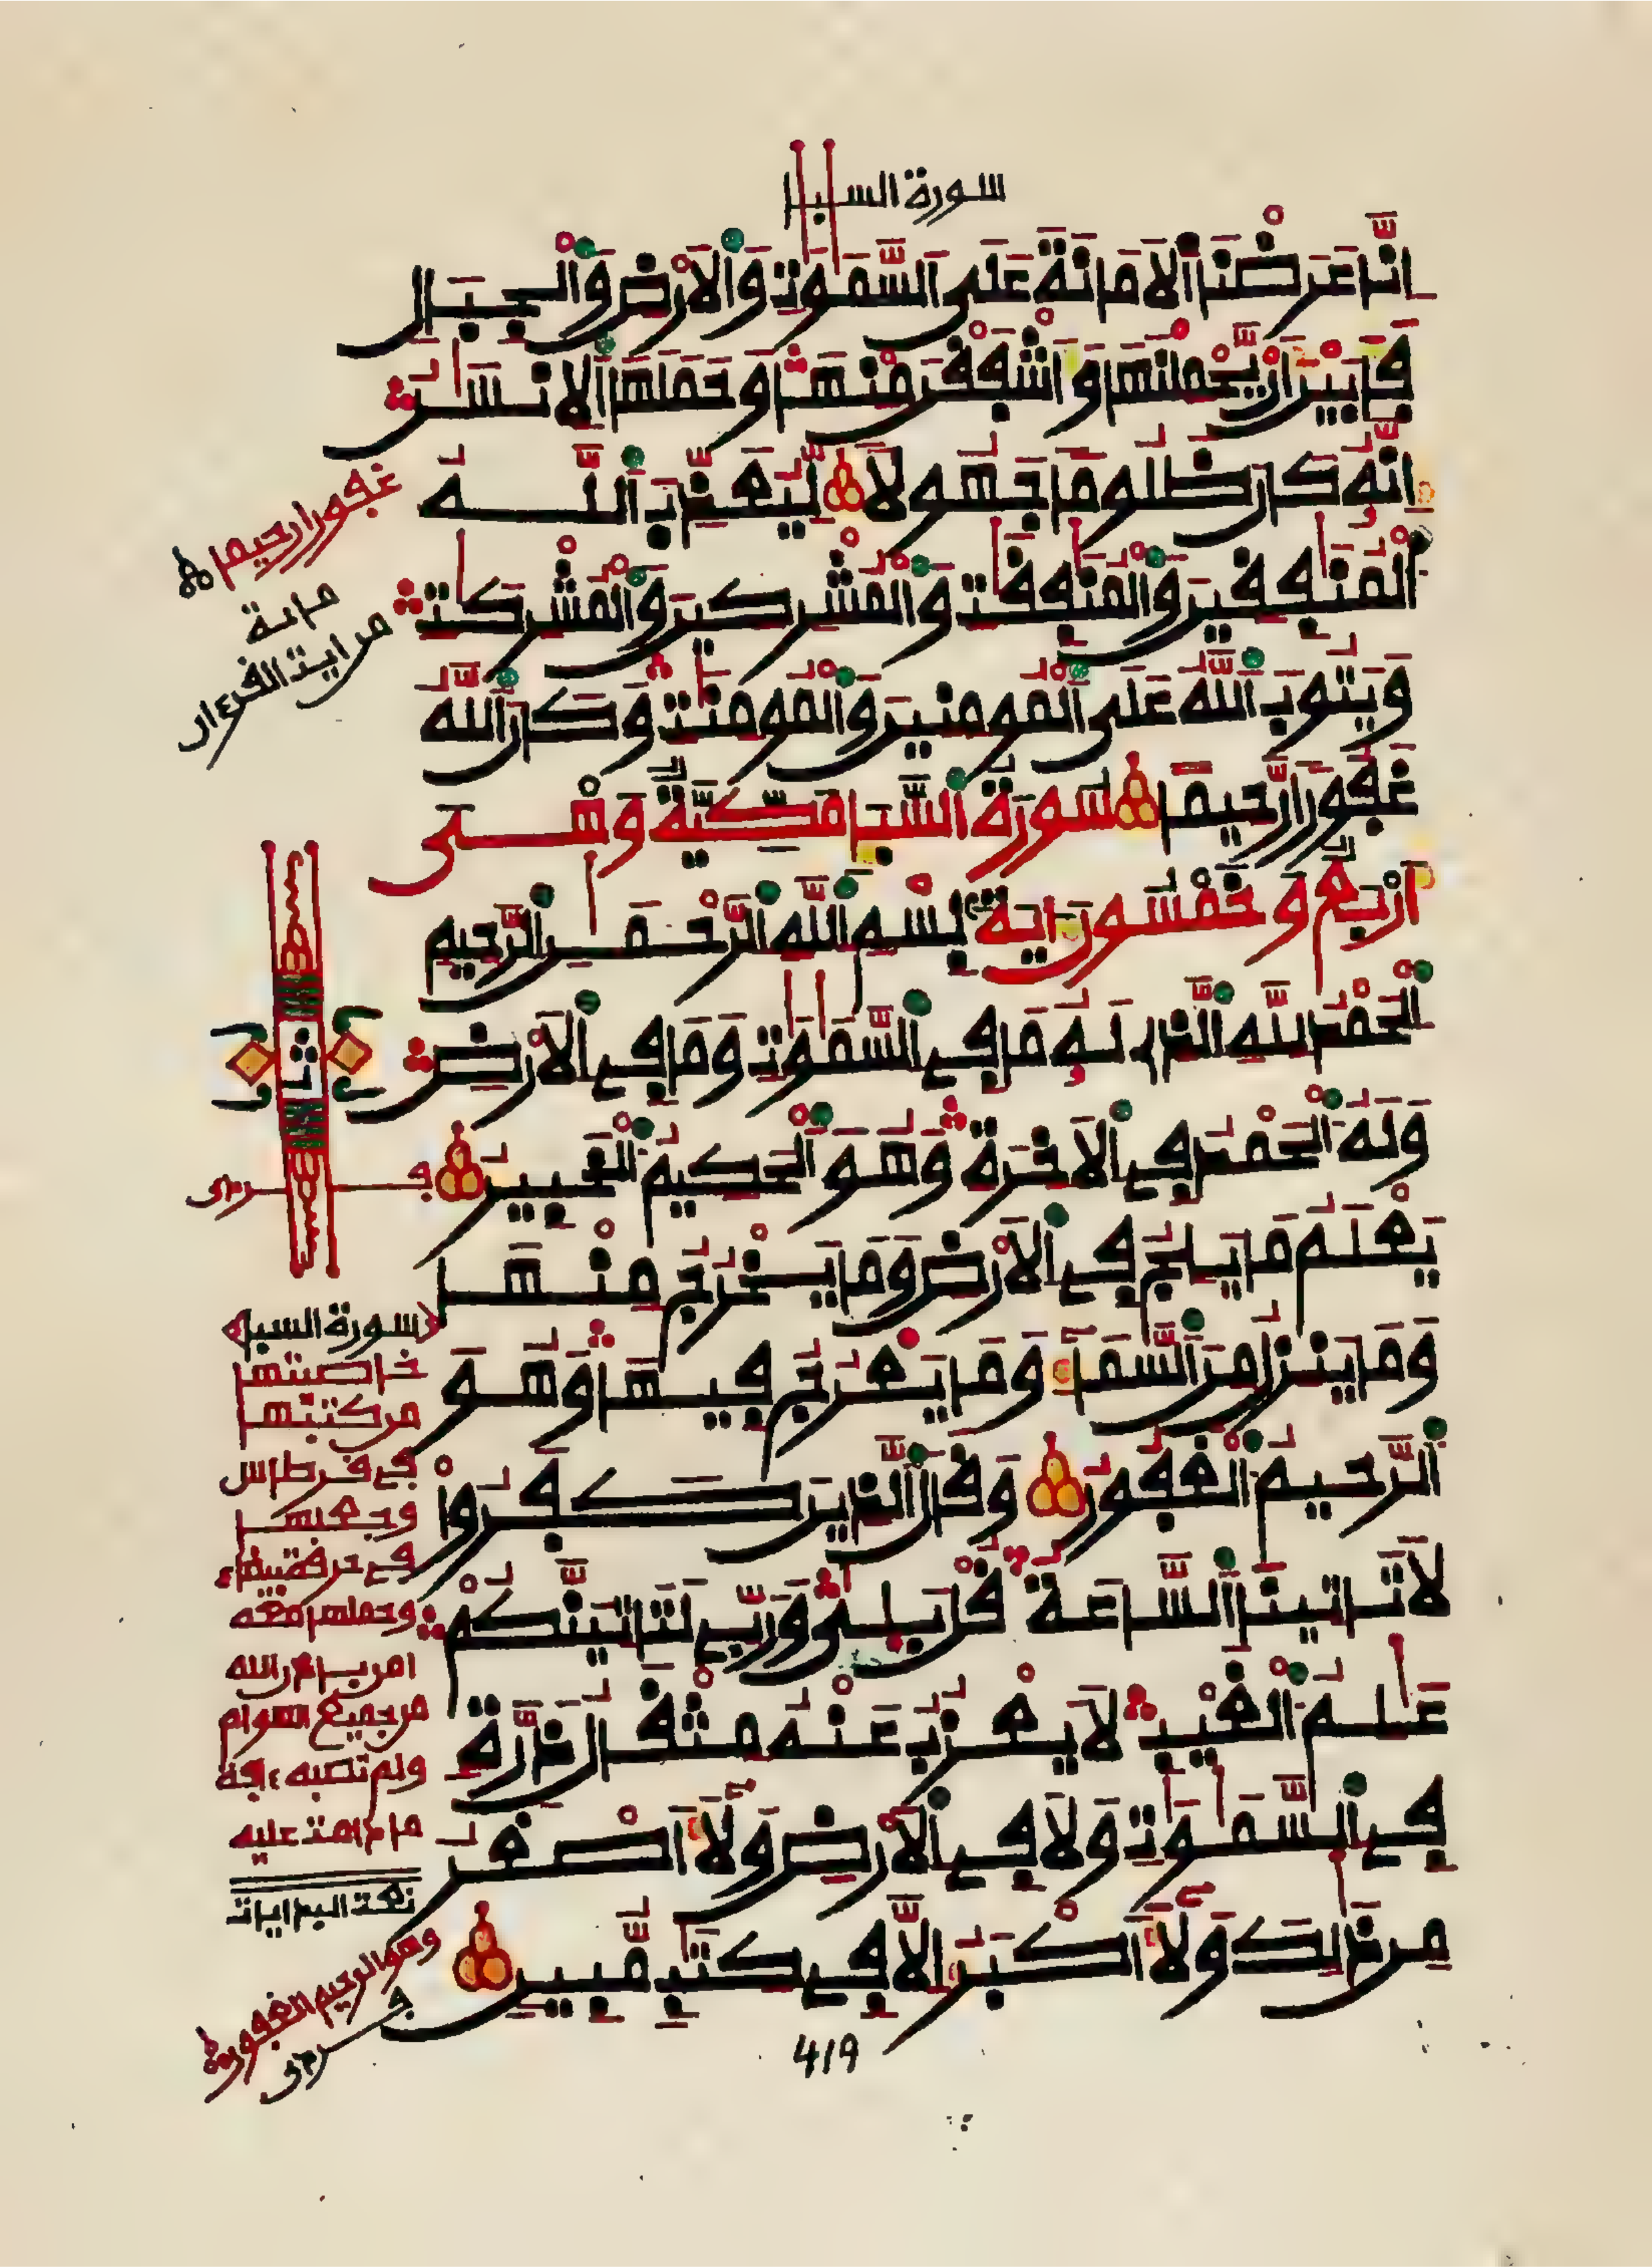 سورة السبإ
إنا عرضنا الامانة على السموت والارض والجبال
فأبين ان يحملنها وأشفقن منها وحملها الانسن
إنه كان ظلوما جهولا ليعذب الله
المنفقين والمنفقت والمشركين والمشركت
ويتوب الله على المومنين والمومنت وكان الله
غفورا رحيما سورة السبإ مكية وهى
أربع وخمسون اية بسم الله الرحمن الرحيم
الحمد لله الذى له ما فى السموت وما فى الارض
وله الحمد فى الاخرة وهو الحكيم الخبير
يعلم ما يلج فى الارض وما يخرج منها
وما ينزل من السماء وما يعرج فيها وهو
الرحيم الغفور وقال الذين كفروا
لا تاتينا الساعة قل بلى وربى لتاتينكم
علم الغيب لا يعزب عنه مثقال ذرة
فى السموت ولا فى الارض ولا أصغر
من ذلك ولا أكبر إلا فى كتب مبين
419
غفورا رحيما
مائة
من ايت القرءان
ثمن
سورة السبإ
خاصتها
من كتبها
فى قرطاس
وجعلها
فى خرقة بيضاء
وحملها معه
امن بإذن الله
من جميع الهوام
ولم تصبه ءافة
ما دامت عليه
وهو الرحيم الغفور